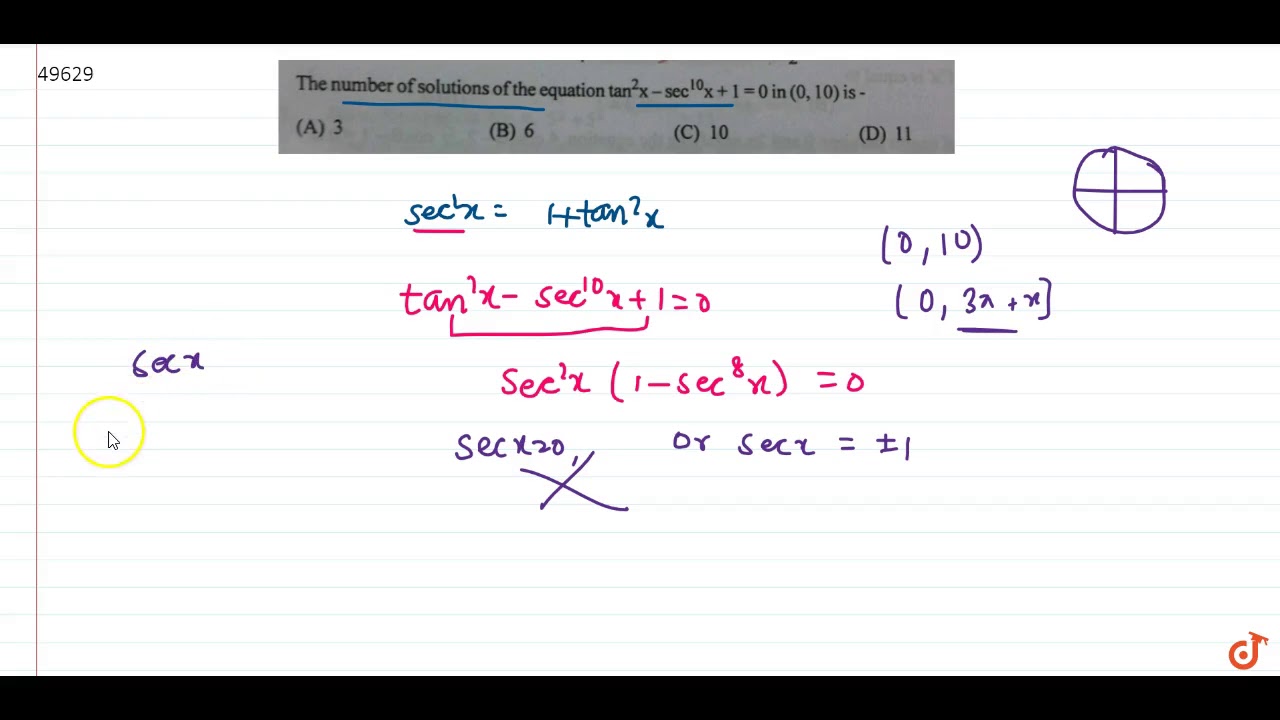 49629
The number of solutions of the equation tan²x – sec¹⁰x + 1 = 0 in (0, 10) is -
(A) 3 (B) 6 (C) 10 (D) 11
sec²x = 1+tan²x
(0, 10)
tan²x – sec¹⁰x + 1 = 0
[0, 3π + x]
sec x
sec²x (1 – sec⁸x) = 0
sec x = 0, or sec x = ±1